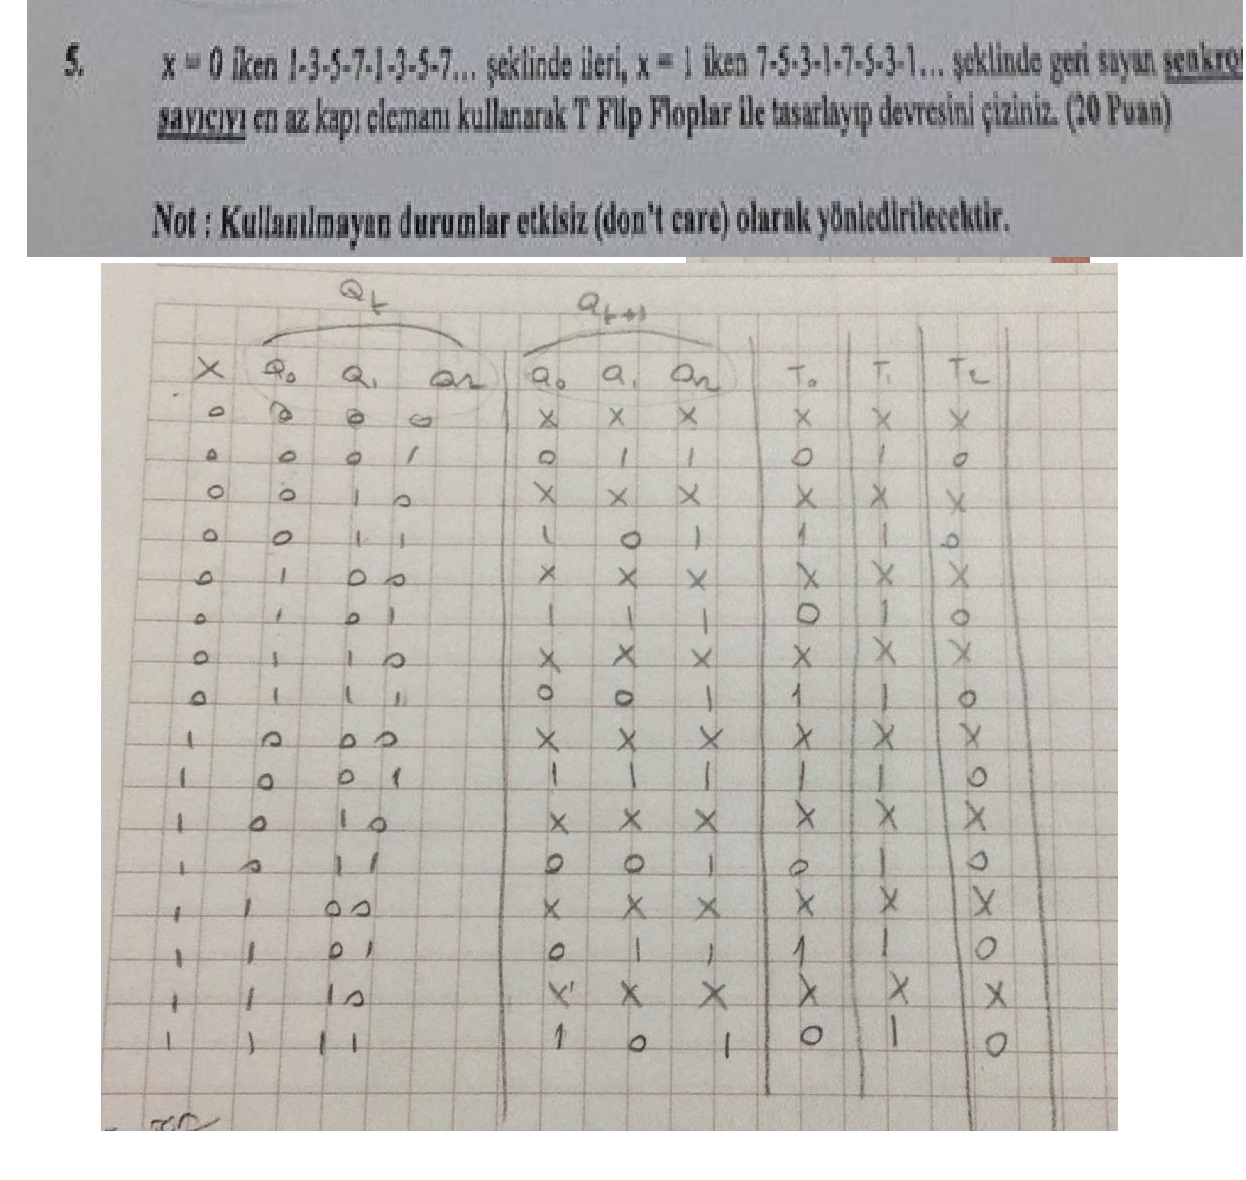 5. x = 0 iken 1-3-5-7-1-3-5-7... şeklinde ileri, x = 1 iken 7-5-3-1-7-5-3-1... şeklinde geri sayan senkro
sayıcıyı en az kapı elemanı kullanarak T Flip Floplar ile tasarlayıp devresini çiziniz. (20 Puan)
Not : Kullanılmayan durumlar etkisiz (don't care) olarak yönledirilecektir.
Qt Qt+1
X Q0 Q1 Q2 Q0 Q1 Q2 T0 T1 T2
0 0 0 0 X X X X X X
0 0 0 1 0 1 1 0 1 0
0 0 1 0 X X X X X X
0 0 1 1 1 0 1 1 1 0
0 1 0 0 X X X X X X
0 1 0 1 1 1 1 0 1 0
0 1 1 0 X X X X X X
0 1 1 1 0 0 1 1 1 0
1 0 0 0 X X X X X X
1 0 0 1 1 1 1 1 1 0
1 0 1 0 X X X X X X
1 0 1 1 0 0 1 0 1 0
1 1 0 0 X X X X X X
1 1 0 1 0 1 1 1 1 0
1 1 1 0 X X X X X X
1 1 1 1 1 0 1 0 1 0